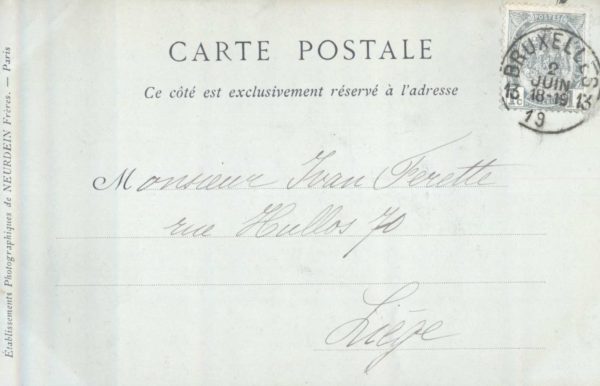 CARTE POSTALE
Ce côté est exclusivement réservé à l'adresse
POSTES
BRUXELLES
JUIN
18-19
13 13
19
Monsieur Ivan Ferette
rue Hullos 70
Liége
Établissements Photographiques de NEURDEIN Frères. — Paris